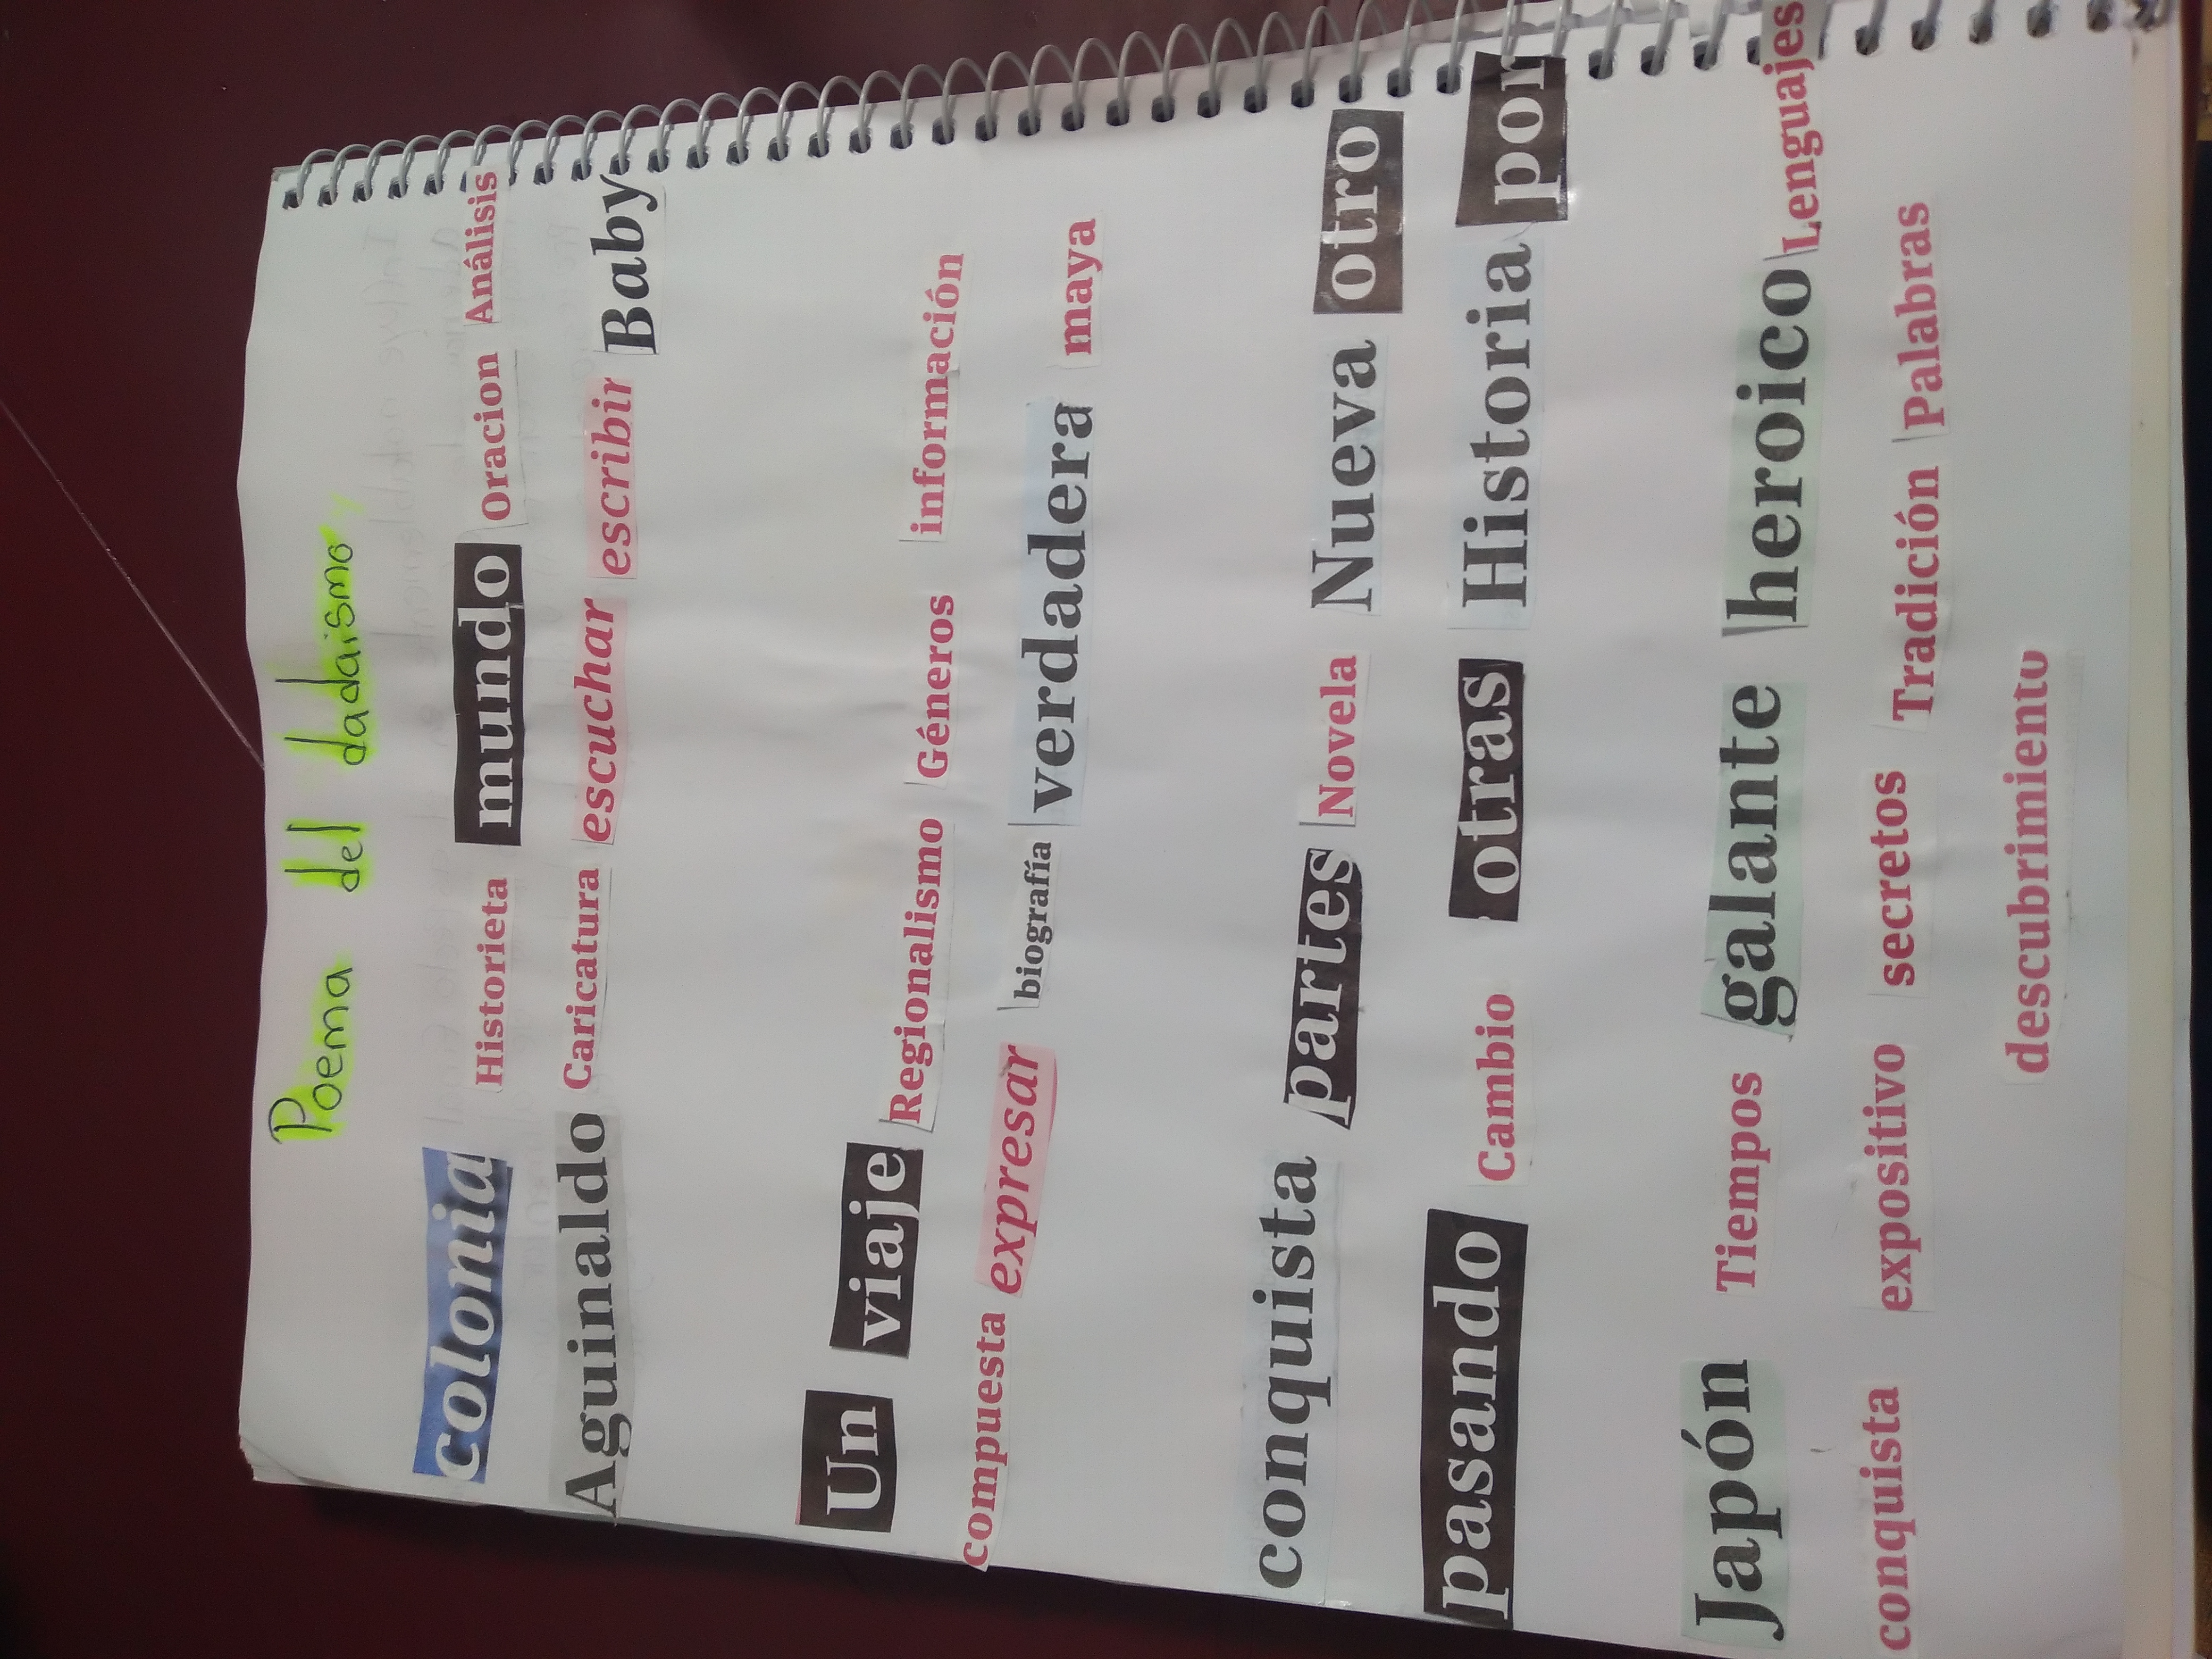 Poema del dadaismo
colonia Historieta mundo Oracion Análisis
Aguinaldo Caricatura escuchar escribir Baby
Un viaje Regionalismo Géneros información
compuesta expresar biografía verdadera maya
conquista partes Novela Nueva otro
pasando Cambio otras Historia por
Japón Tiempos galante heroico Lenguajes
conquista expositivo secretos Tradición Palabras
descubrimiento